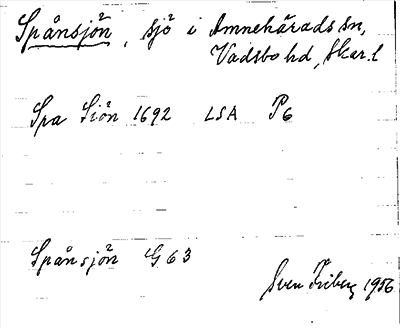 Spånsjön, sjö i Amnehärads sn,
Vadsbo hd, Skar. l
Spa Siön 1692 LSA P6
Spånsjön G 63
Sven Friberg 1956